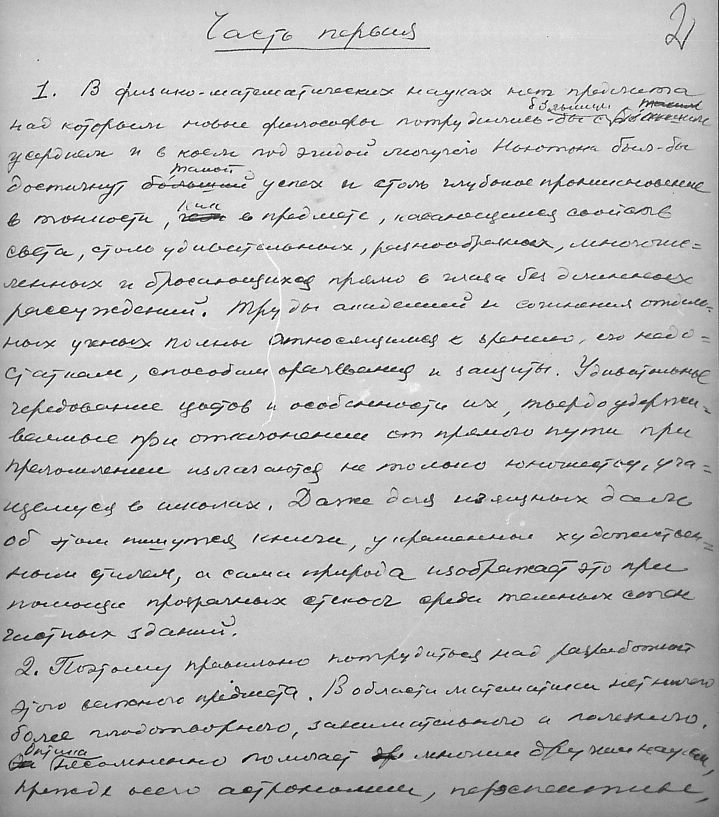 2
Часть первая
1. В физико-математических науках нет предмета
над которым новые философы потрудились-бы с большим
усердием и в коем под эгидой могучего Ньютона был-бы
достигнут такой успех и столь глубокое проникновение
в тонкости, как в предмете, касающимся свойств
света, столь удивительных, разнообразных, многочис=
ленных и бросающихся прямо в глаза без длинных
рассуждений. Труды академий и сочинения отдель=
ных ученых полны относящимися к зрению, его недо=
статкам, способам врачевания и защиты. Удивительные
чередование цветов и особенности их, твердо удержи=
ваемые при отклонении от прямого пути при
преломлении излагаются не только юношеству, уча=
щемуся в школах. Даже для изящных дам
об этом пишутся книги, украшенные художествен=
ным стилем, а сама природа изображает это при
помощи прозрачных стекол среди темных стен
частных зданий.
2. Поэтому правильно потрудиться над разработкой
этого важного предмета. В области математики нет ничего
более плодотворного, занимательного и полезного.
Оптика несомненно помогает многим другим наукам,
прежде всего астрономии, перспективе,